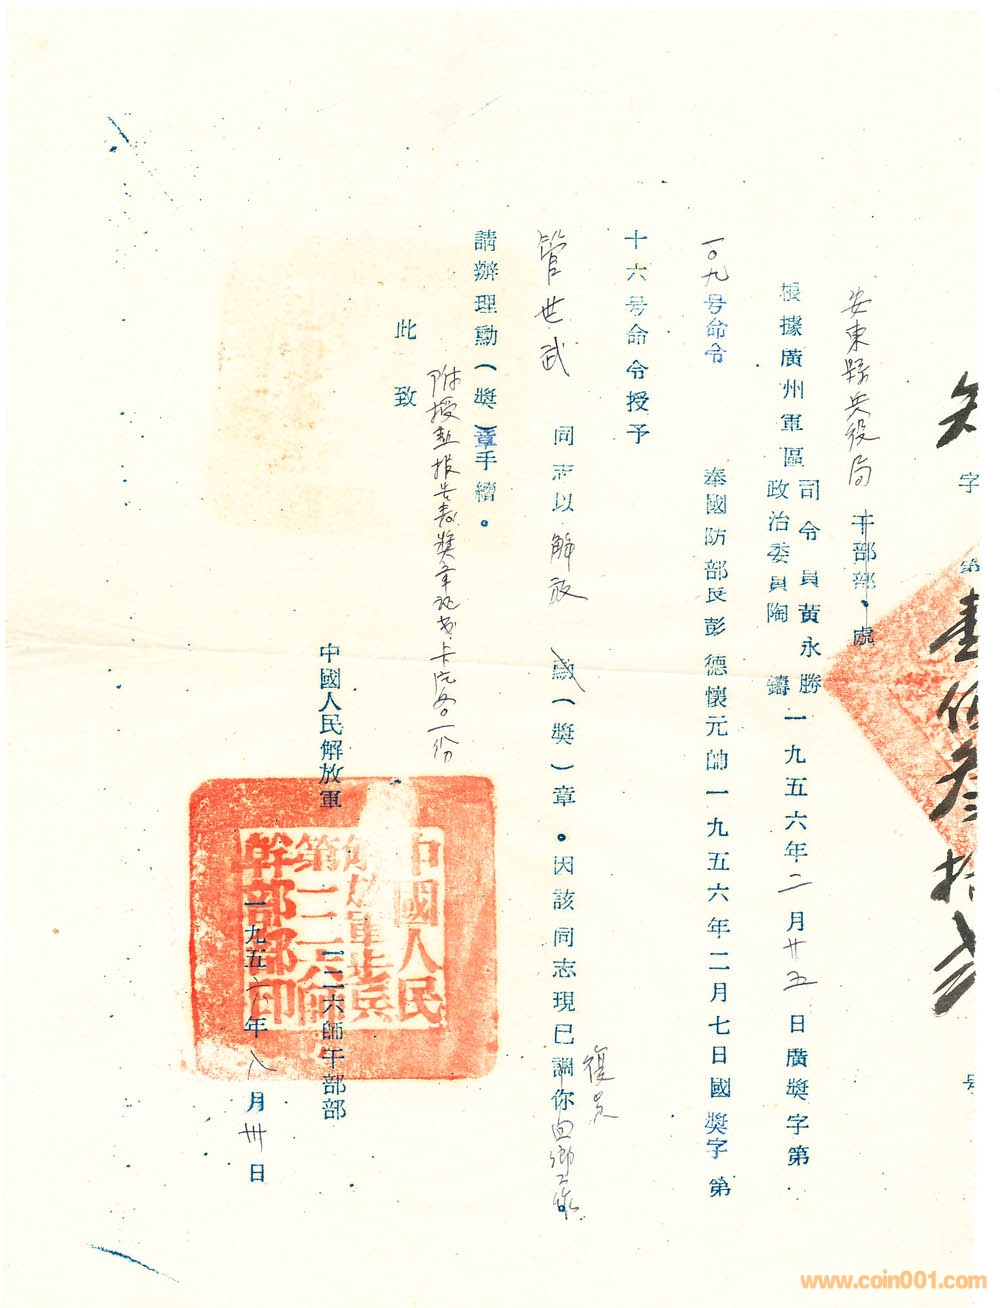 字第壹佰叁拾弍号
安東縣兵役局干部部、處
根據廣州軍區司令員黃永勝政治委員陶鑄一九五六年二月廿五日廣獎字第
一〇九号命令奉國防部長彭德懷元帥一九五六年二月七日國獎字第
十六号命令授予
管世武同志以解放勳(獎)章。因該同志現已調你復員回鄉工作
請辦理勳(獎)章手續。
附授勳報告表獎章証書卡片各一份
此致
中國人民解放軍一二六師干部部
一九五六年八月卅日
中國人民
解放軍步兵
第一二六師
幹部部印
www.coin001.com